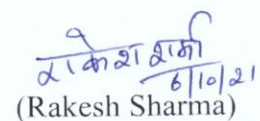 राकेश शर्मा
6/10/21
(Rakesh Sharma)